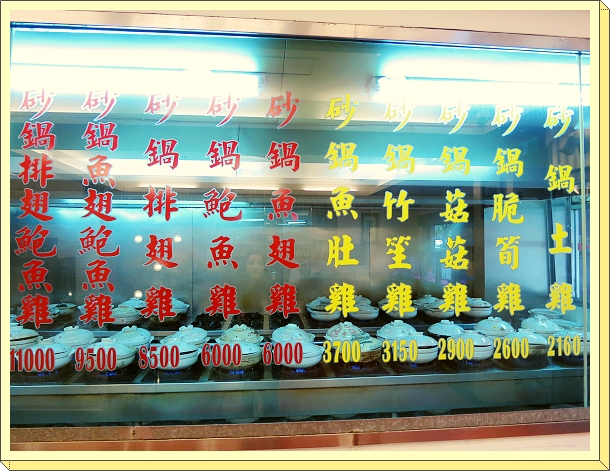 砂鍋排翅鮑魚雞
11000
砂鍋魚翅鮑魚雞
9500
砂鍋排翅雞
8500
砂鍋鮑魚雞
6000
砂鍋魚翅雞
6000
砂鍋魚肚雞
3700
砂鍋竹笙雞
3150
砂鍋菇菇雞
2900
砂鍋脆筍雞
2600
砂鍋土雞
2160